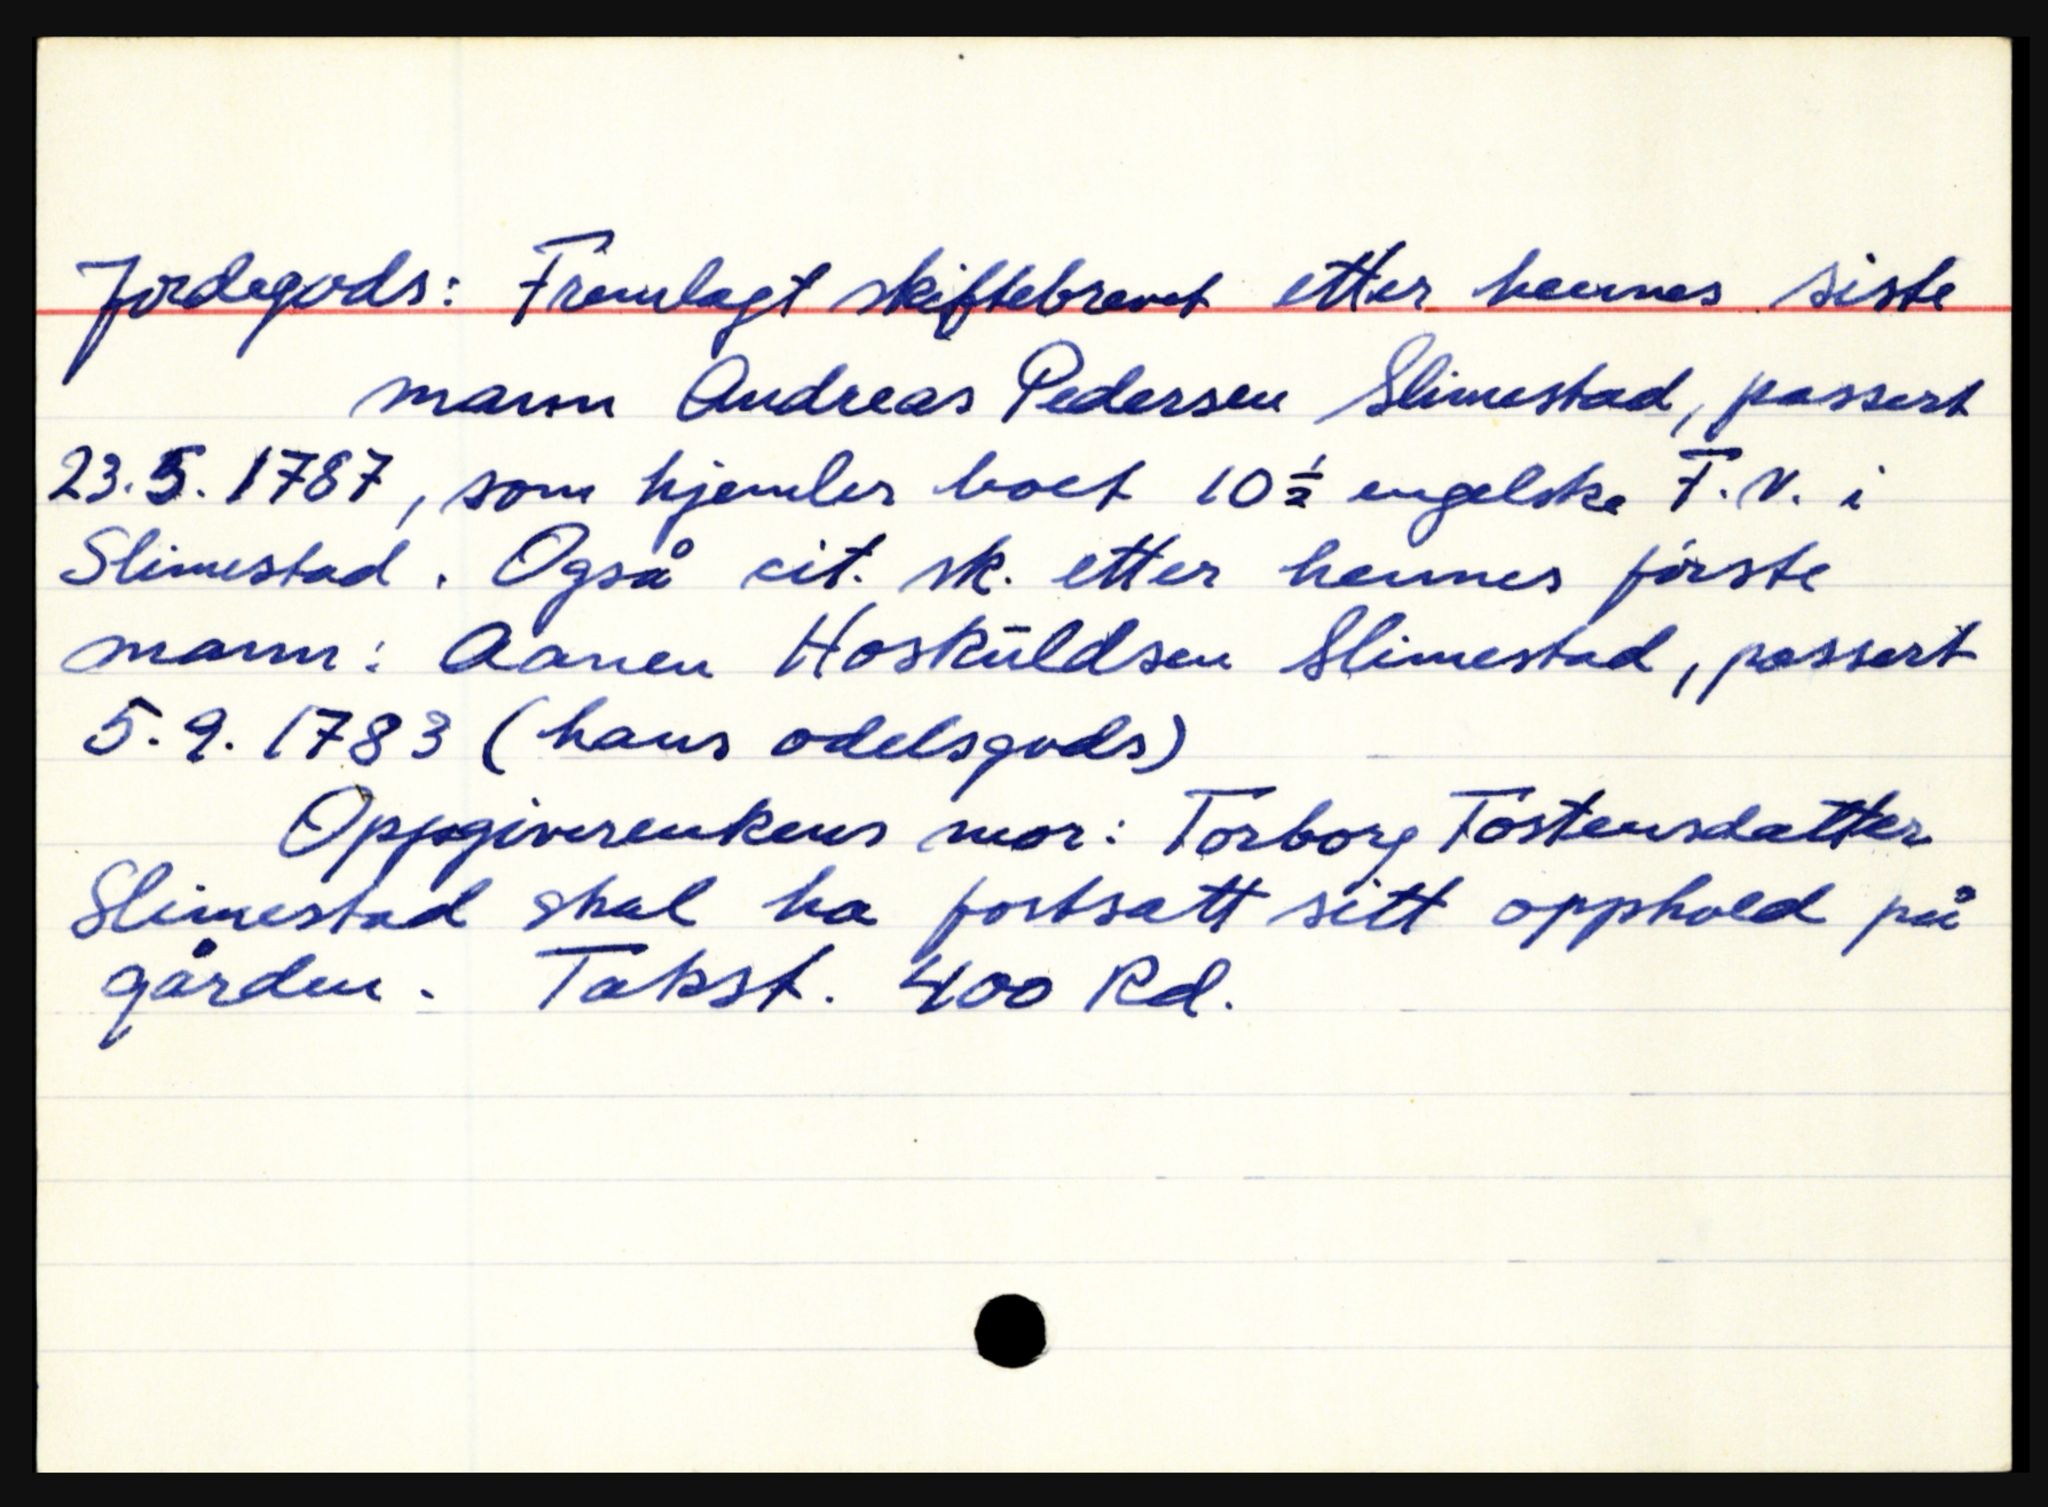 Jordegods: Fremlagt skiftebrevet etter hennes siste
mann Andreas Pedersen Slimestad, passert
23.5.1787, som hjemler boet 10½ engelske F.V. i
Slimestad. Også cit. sk. etter hennes første
mann: Aanen Hoskuldsen Slimestad, passert
5.9.1783 (hans odelsgods)
Oppgiverenkens mor: Torborg Tostensdatter
Slimestad skal ha fortsatt sitt opphold på
gården. Takst. 400 Rd.